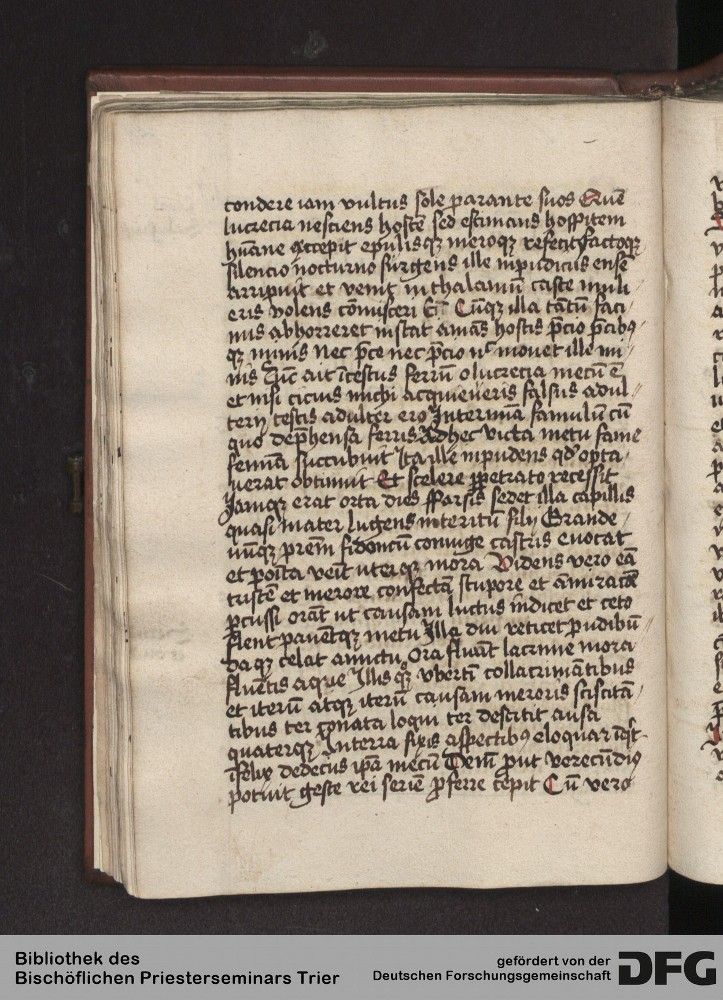 condere iam vultus sole parante suos Quē
lucrecia nesciens hostē sed estimans hospitem
hūane accepit epulisqz meroqz refecit factoqz
silencio nocturno surgens ille inpudicus ense
arripuit et venit in thalamū caste muli
eris volens cōmisceri Cūqz illa tātū faci
nus abhorreret instat amās hostis p̄cio p̄cibqz
qz minis Nec p̄ce nec p̄cio mouet ille mi
nis ait īcestus ferrū o lucrecia mecū ē
et nisi cicius michi acquieueris falsus adul
terij testis adulter ero Interimā famulū cū
quo dep̄hensa ferris Ad hec victa metu fame
femīa succubuit Ita ille inpudens qd opta
uerat obtinuit Et scelere ꝑpetrato recessit
Iamqz erat orta dies sparsis sedet illa capillis
quasi mater lugens interitū filij Grande
uūqz prēm fidoncū coniuge castris euocat
et posita venīt uterqz mora Videns vero eā
tristē et merore confectā stupore et āmiracōe
ꝑcussi orāt ut causam luctus indicet et ceto
flent pauētqz metu Illa diu reticet pudibū
da qz celat amictu Ora fluūt lacrime more
fluentis aque Illis qz vbertī collacrimātibus
et iterū atqz iterū causam meroris sciscitā
tibus ter conata loqui ter destitit ausa
quaterqz In terra fixis aspectibꝰ eloquar īqt
īfelix dedecus ip̄a mecū Demū put verecūdiꝰ
potuit geste rei seriē ꝓferre cepit Cū vero
Bibliothek des
Bischöflichen Priesterseminars Trier
gefördert von der
Deutschen Forschungsgemeinschaft
DFG